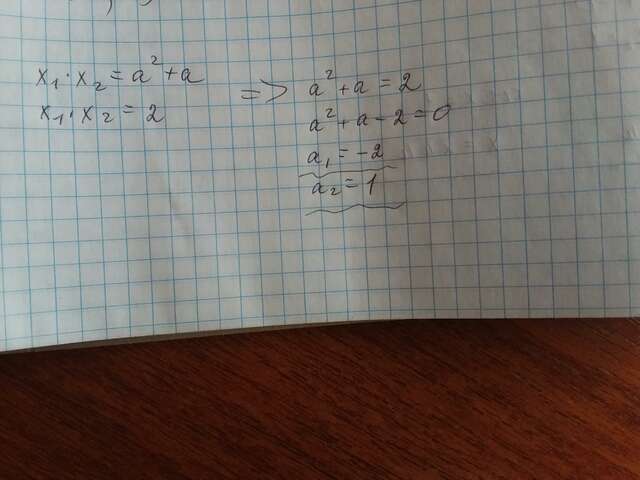 x₁·x₂ = a² + a
x₁·x₂ = 2
=> a² + a = 2
a² + a - 2 = 0
a₁ = -2
a₂ = 1